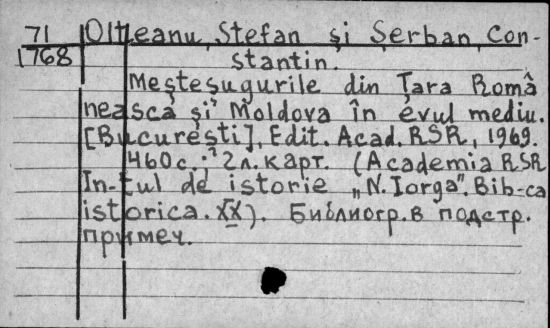 71 Olteanu, Ștefan și Șerban, Con-
1768 stantin.
Meșteșugurile din Țara Româ
nească și Moldova în evul mediu.
[București], Edit. Acad. RSR, 1969.
460 с.; 2 л. карт. (Academia RSR
In-tul de istorie „N. Iorga". Bib-ca
istorica. XX). Библиогр. в подстр.
примеч.